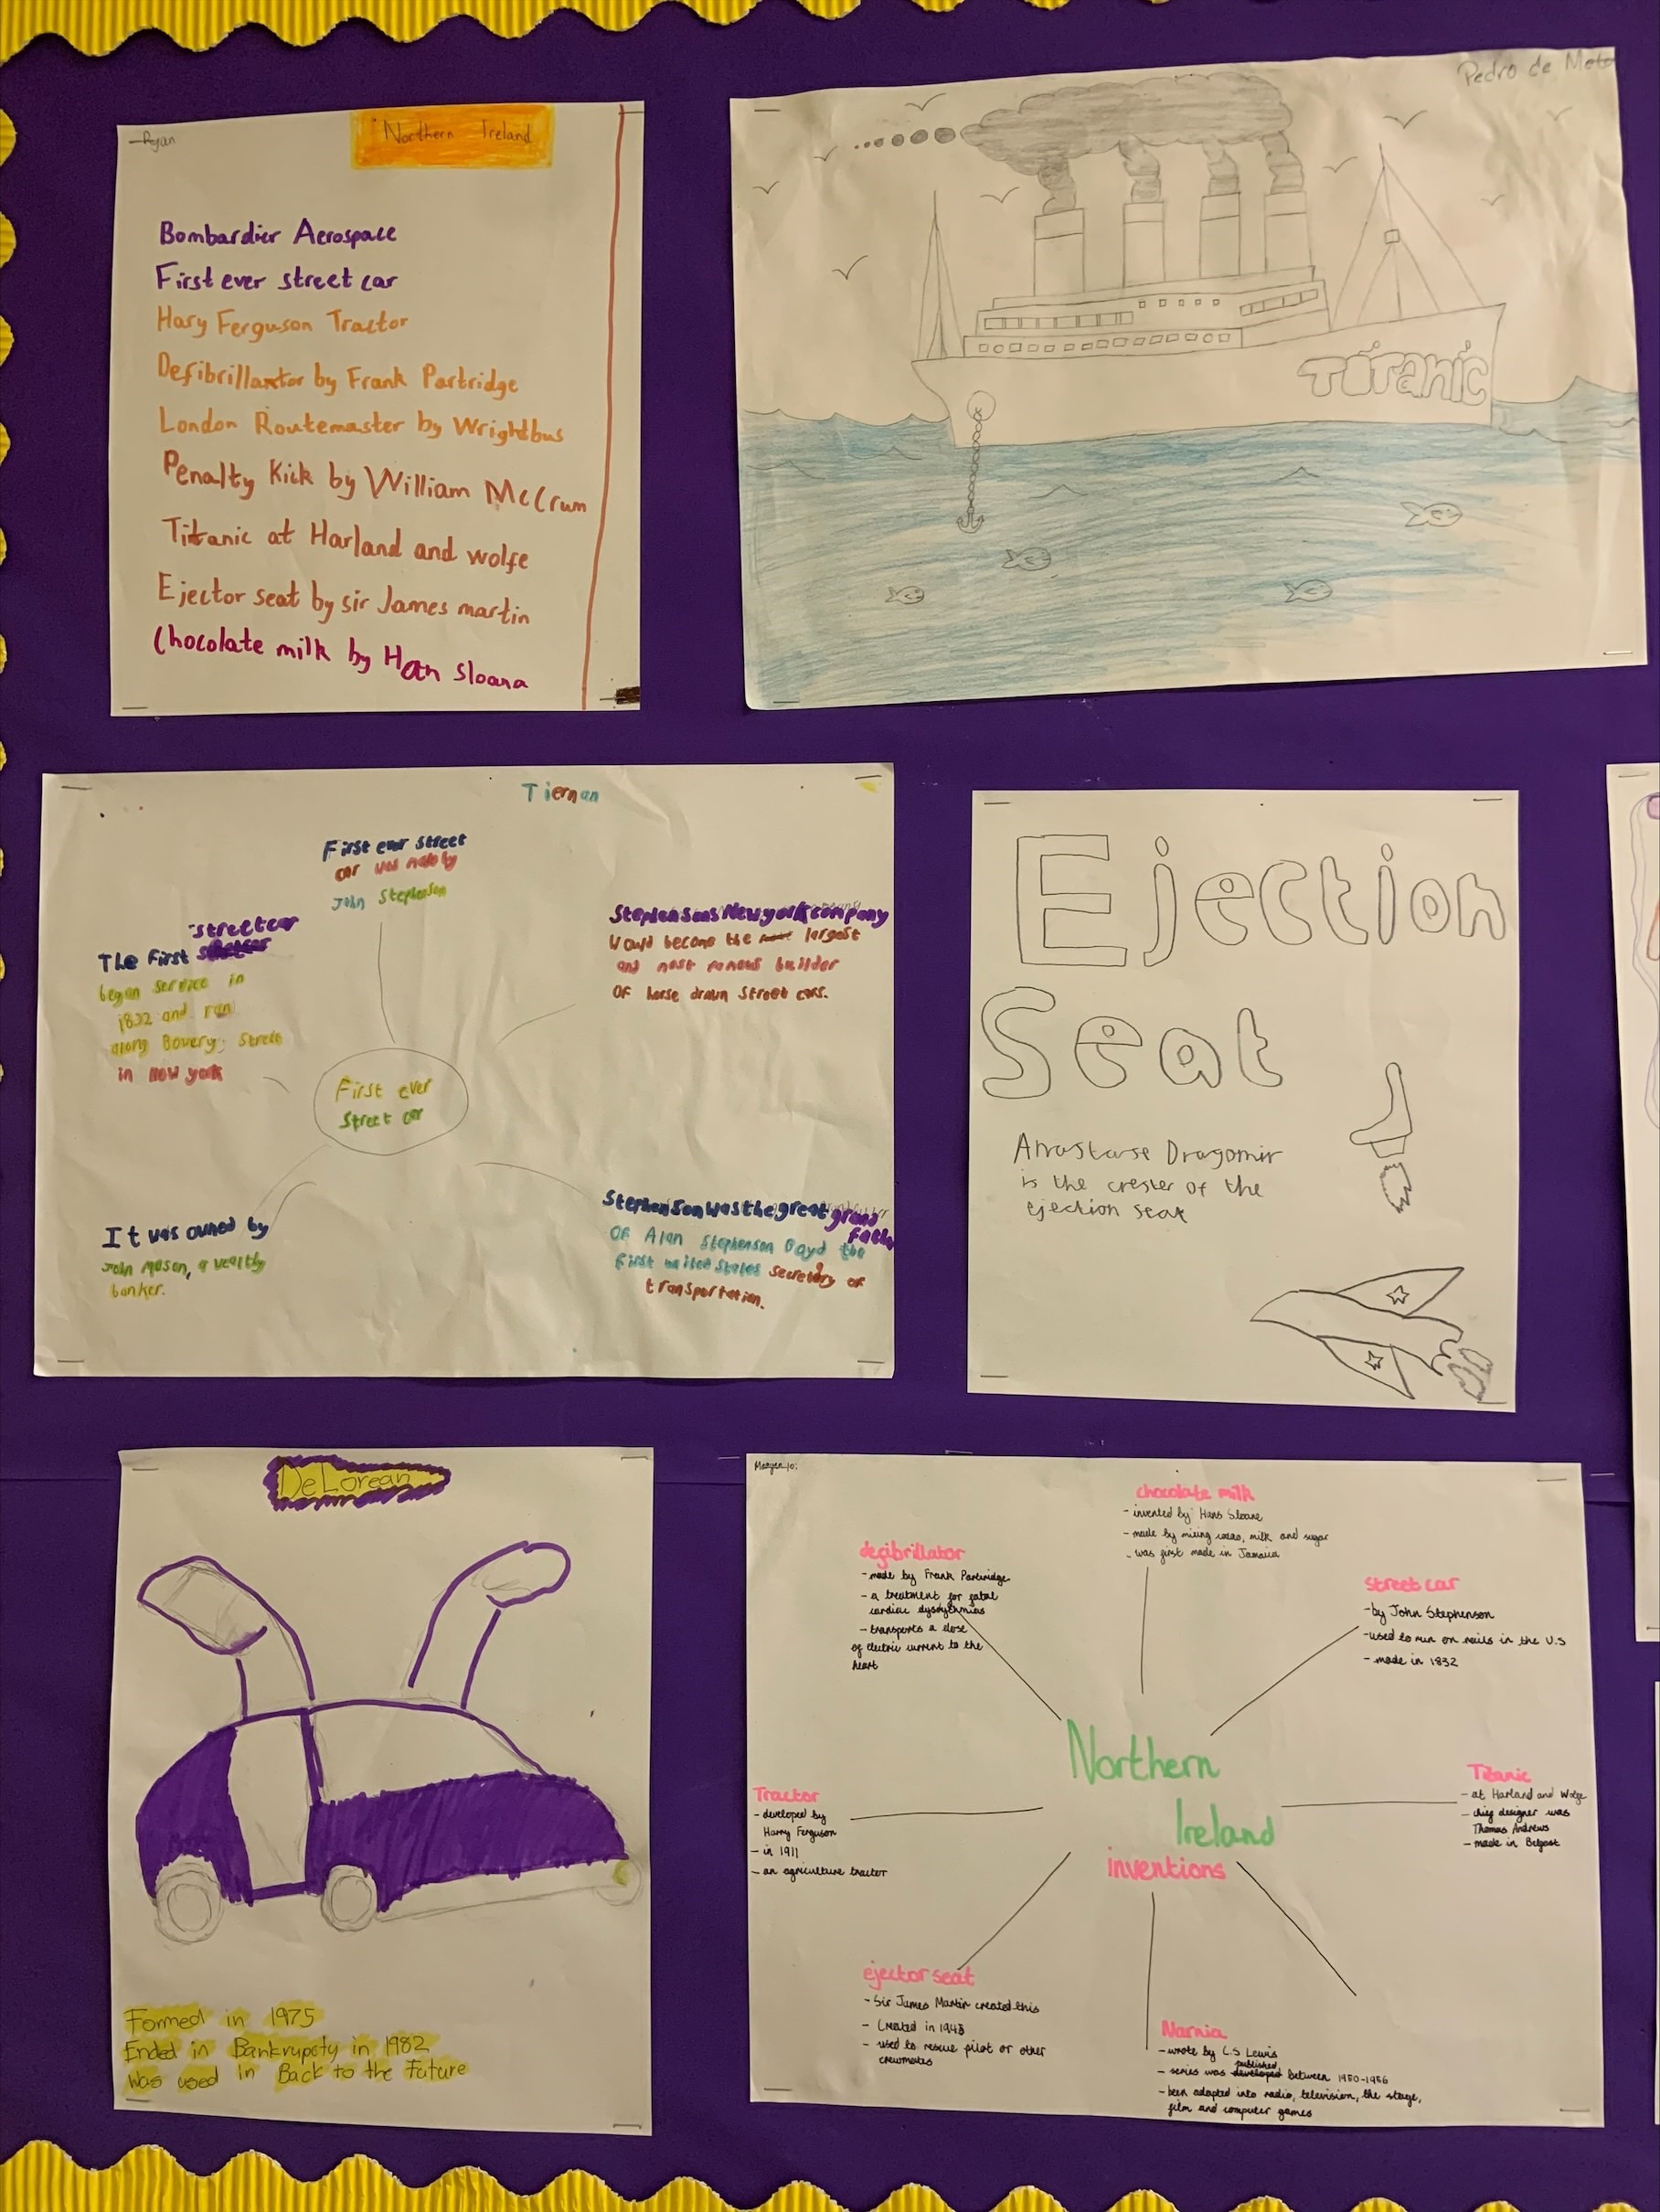 Ryan
Northern Ireland
Bombardier Aerospace
First ever street car
Hary Ferguson Tractor
Defibrillantor by Frank Partridge
London Routemaster by Wrightbus
Penalty Kick by William McCrum
Titanic at Harland and wolfe
Ejector seat by sir James martin
Chocolate milk by Han Sloana
Pedro de Melo
TiTanic
Tiernan
First ever street
car was made by
John Stephenson
streetcar
The First
began service in
1832 and ran
along Bowery Street
in New york
Stephensons New york company
Would become the largest
and most famous builder
OF horse drawn Street cars.
First ever
Street car
It was owned by
John Mason, a wealthy
banker.
Stephenson was the great grand
Fath
OF Alan Stephenson Boyd the
First united States secretary of
transportation.
Ejection
Seat
Anastase Dragomir
is the creater of the
ejection seat
DeLorean
Formed in 1975
Ended in Bankrupcty in 1982
Was used in Back to the Future
chocolate milk
- invented by Hans Sloane
- made by mixing cacao, milk and sugar
- was first made in Jamaica
defibrillator
- made by Frank Partridge
- a treatment for fatal
cardiac dysrythmias
- transports a dose
of electric current to the
heart
street car
- by John Stephenson
- used to run on rails in the U.S
- made in 1832
Northern
Ireland
inventions
Tractor
- developed by
Harry Ferguson
- in 1911
- an agriculture tractor
Titanic
- at Harland and Wolfe
- chief designer was
Thomas Andrews
- made in Belfast
ejector seat
- Sir James Martin created this
- Created in 1945
- used to rescue pilot or other
crewmates
Narnia
- wrote by C.S Lewis
- series was developed published between 1950-1956
- been adapted into radio, television, the stage,
film and computer games